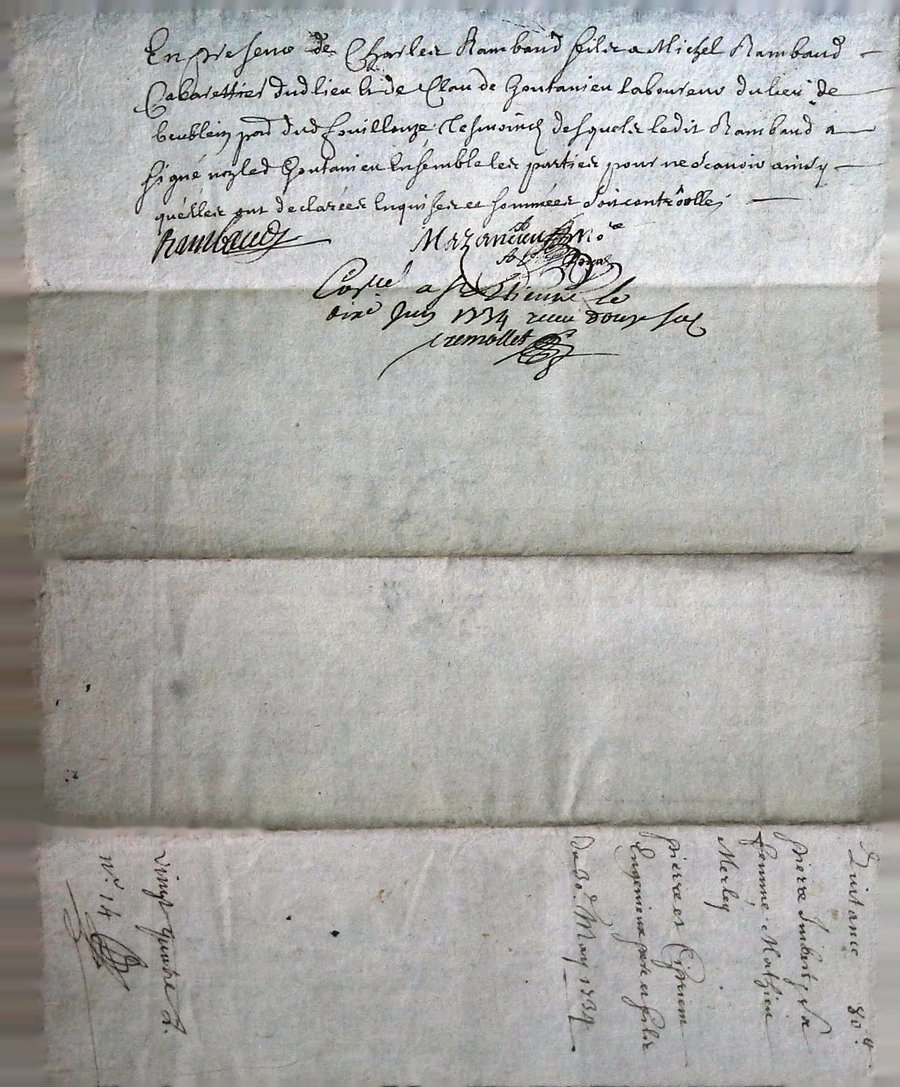 En presence de Charles Rambaud fils a Michel Rambaud
Cabarettier dud lieu & de Claude Goutanieu laboureur du lieu de
par dud fouillouze tesmoincz desquels ledit Rambaud a
signé no led Goutanieu ensemble les parties pour ne scavoir ainsy
quelles ont declarées enquises et sommées soit controollé
Rambaud Mazancieu No re
Royal
Con lé a St Etienne le
dixe Juin 1734 receu douze sols
Cremollet
Quitance 80 #
pierre Imbert, sa
femme, Mathieu
Merley
pierre et Cipriem
Engenieux pere et fils
Du 30e May 1734
Vingt quatre
n° 14